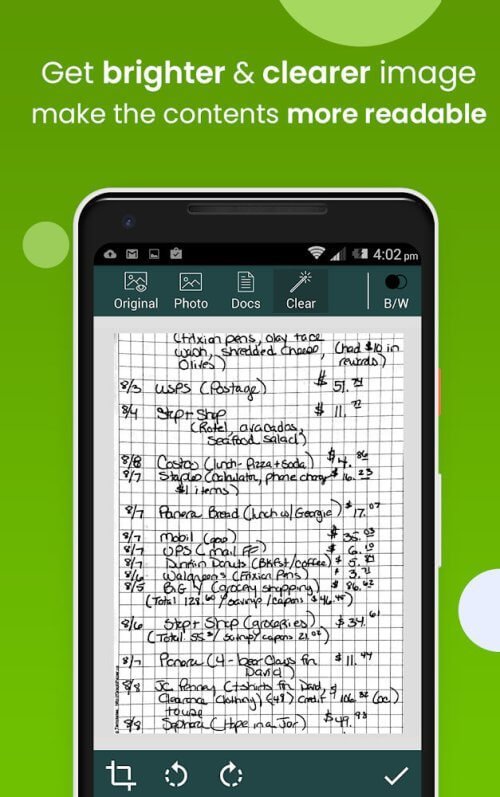 Get brighter & clearer image
make the contents more readable
4:02 pm
Original Photo Docs Clear B/W
(Frixion pens, olay face
wash, shredded cheese, (had $10 in
Olives) rewards)
8/3 USPS (Postage) $ 51.74
8/4 Stop + Shop $ 11.72
(Rotel, avacados,
seafood salad)
8/8 Costco (lunch - Pizza + Soda) $ 4.86
8/7 Staples (Calculator, phone charg $ 16.23
$1 items)
8/7 Panera Bread (lunch w/ Georgie) $ 17.07
8/7 Mobil (gas) $ 35.03
8/7 UPS (mail FF) $ 6.10
8/7 Dunkin Donuts (Bkfst/coffee) $ 5.84
8/6 Walgreens (Frixion Pens) $ 3.71
8/5 BG Y (grocery shopping) $ 86.62
(Total 128.60 / savings / capons $46.45)
8/6 Stop + Shop (groceries) $ 34.61
(Total 55. / savings / capons 21.02)
8/7 Panera (4 - bear Claws for $ 11.44
David)
8/8 JC Penney (t-shirts for David,
Clearance Clothing) (48) credit $ 106. (CC)
8/8 Sephora (Hope in a Jar) $ 49.93